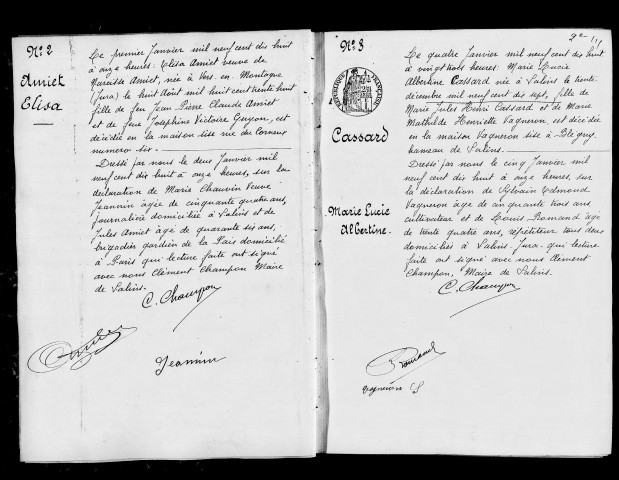 N° 2
Amiet
Elisa
Ce premier Janvier mil neuf cent dix huit
à onze heures: Elisa Amiet veuve de
Narcisse Amiet, née à Vers. en. Montagne
(Jura) le huit Août mil huit cent trente huit
fille de feu Jean Pierre Claude Amiet
et de feue Joséphine Victoire Guyon, est
décédée en la maison sise rue du
numero six. -
Dressé par nous le deux Janvier mil
neuf cent dix huit à onze heures, sur la
déclaration de Marie Chauvin Veuve
Jeannin âgée de cinquante quatre ans,
journalière domiciliée à Salins et de
Jules Amiet âgé de quarante six ans,
brigadier gardien de la Paix domicilié
à Paris qui lecture faite ont signé
avec nous Clément Champon Maire
de Salins.
C. Champon
Jeannin
2e
N° 3
REPUBLIQUE FRANÇAISE
Cassard
Marie Lucie
Albertine.
Ce quatre Janvier mil neuf cent dix huit
à vingt trois heures: Marie Lucie
Albertine Cassard née à Salins le trente
décembre mil neuf cent dix sept, fille de
Marie Jules Henri Cassard et de Marie
Mathilde Henriette Vagneron, est décédée
en la maison Vagneron sise à Blégny
hameau de Salins.
Dressé par nous le cinq Janvier mil
neuf cent dix huit à onze heures, sur
la déclaration de Sylvain Edmond
Vagneron âgé de cinquante trois ans
cultivateur et de Louis Romand âgé
de trente quatre ans, répétiteur tous deux
domiciliés à Salins. Jura. qui lecture
faite ont signé avec nous Clément
Champon, Maire de Salins.
C. Champon
Romand
Vagneron S